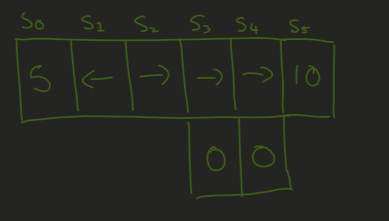 S0 S1 S2 S3 S4 S5
5 ← → → → 10
0 0